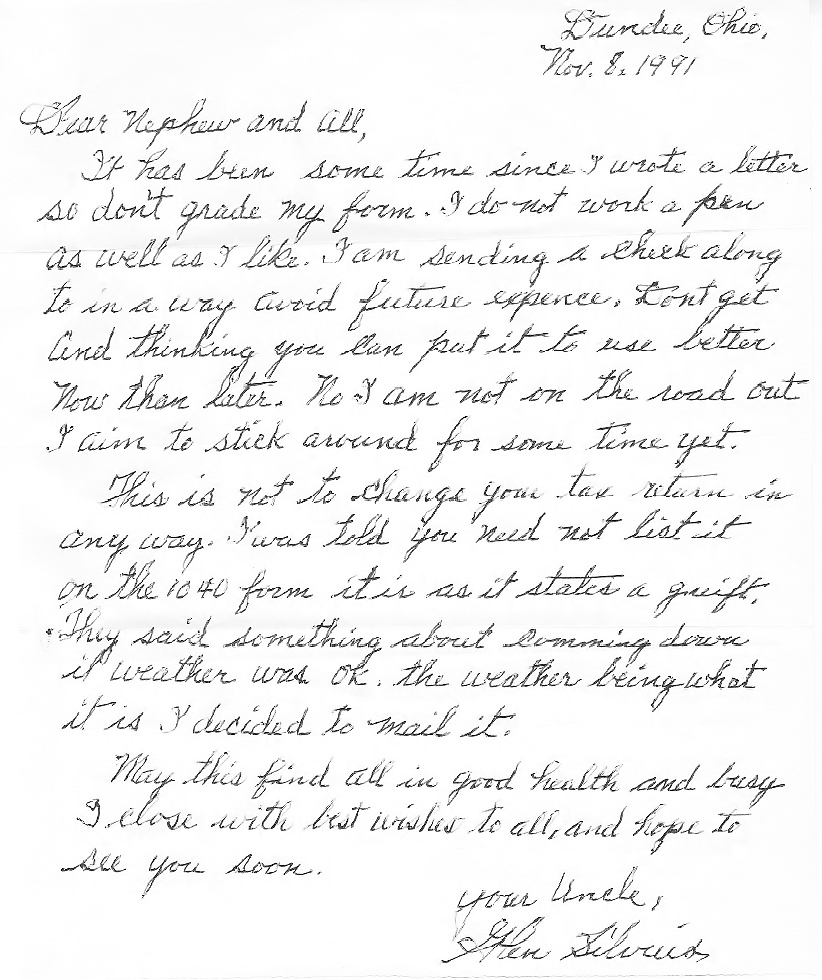 Dundee, Ohio,
Nov. 8. 1991
Dear Nephew and All,
It has been some time since I wrote a letter
so don't grade my form. I do not work a pen
as well as I like. I am sending a check along
to in a way avoid future expence. Dont get
And thinking you can put it to use better
Now than later. No I am not on the road out
I aim to stick around for some time yet.
This is not to change your tax return in
any way. I was told you need not list it
on the 1040 form it is as it states a
They said something about comming down
if weather was ok. the weather being what
it is I decided to mail it.
May this find all in good health and busy
I close with best wishes to all, and hope to
see you soon.
your Uncle,
Glen Silvius